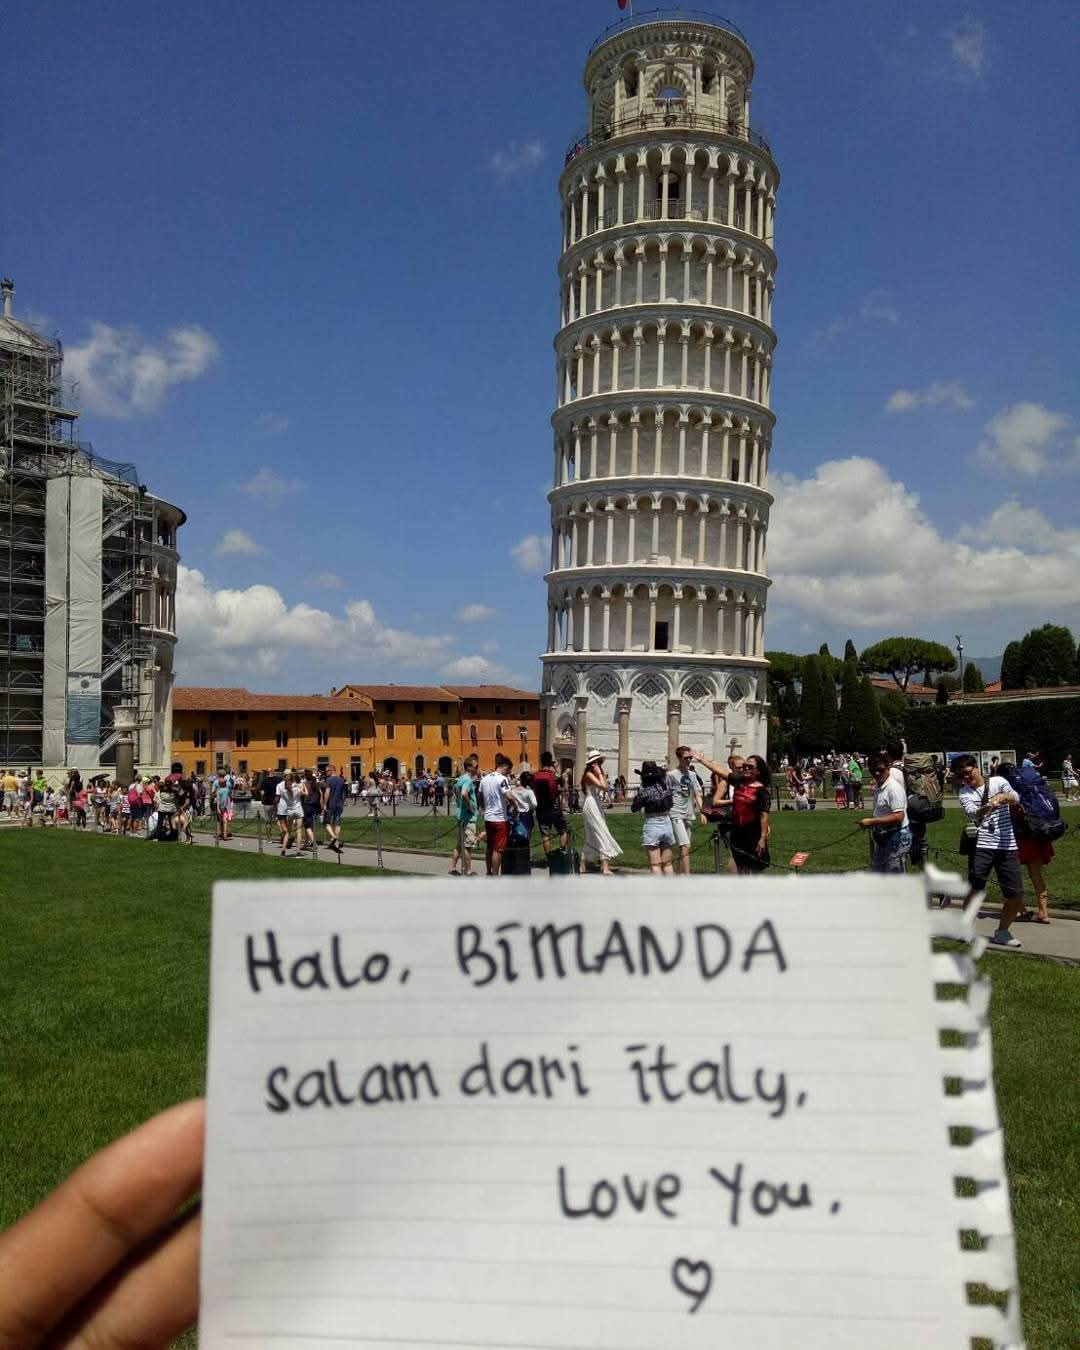 Halo, BIMANDA
salam dari italy,
Love You.